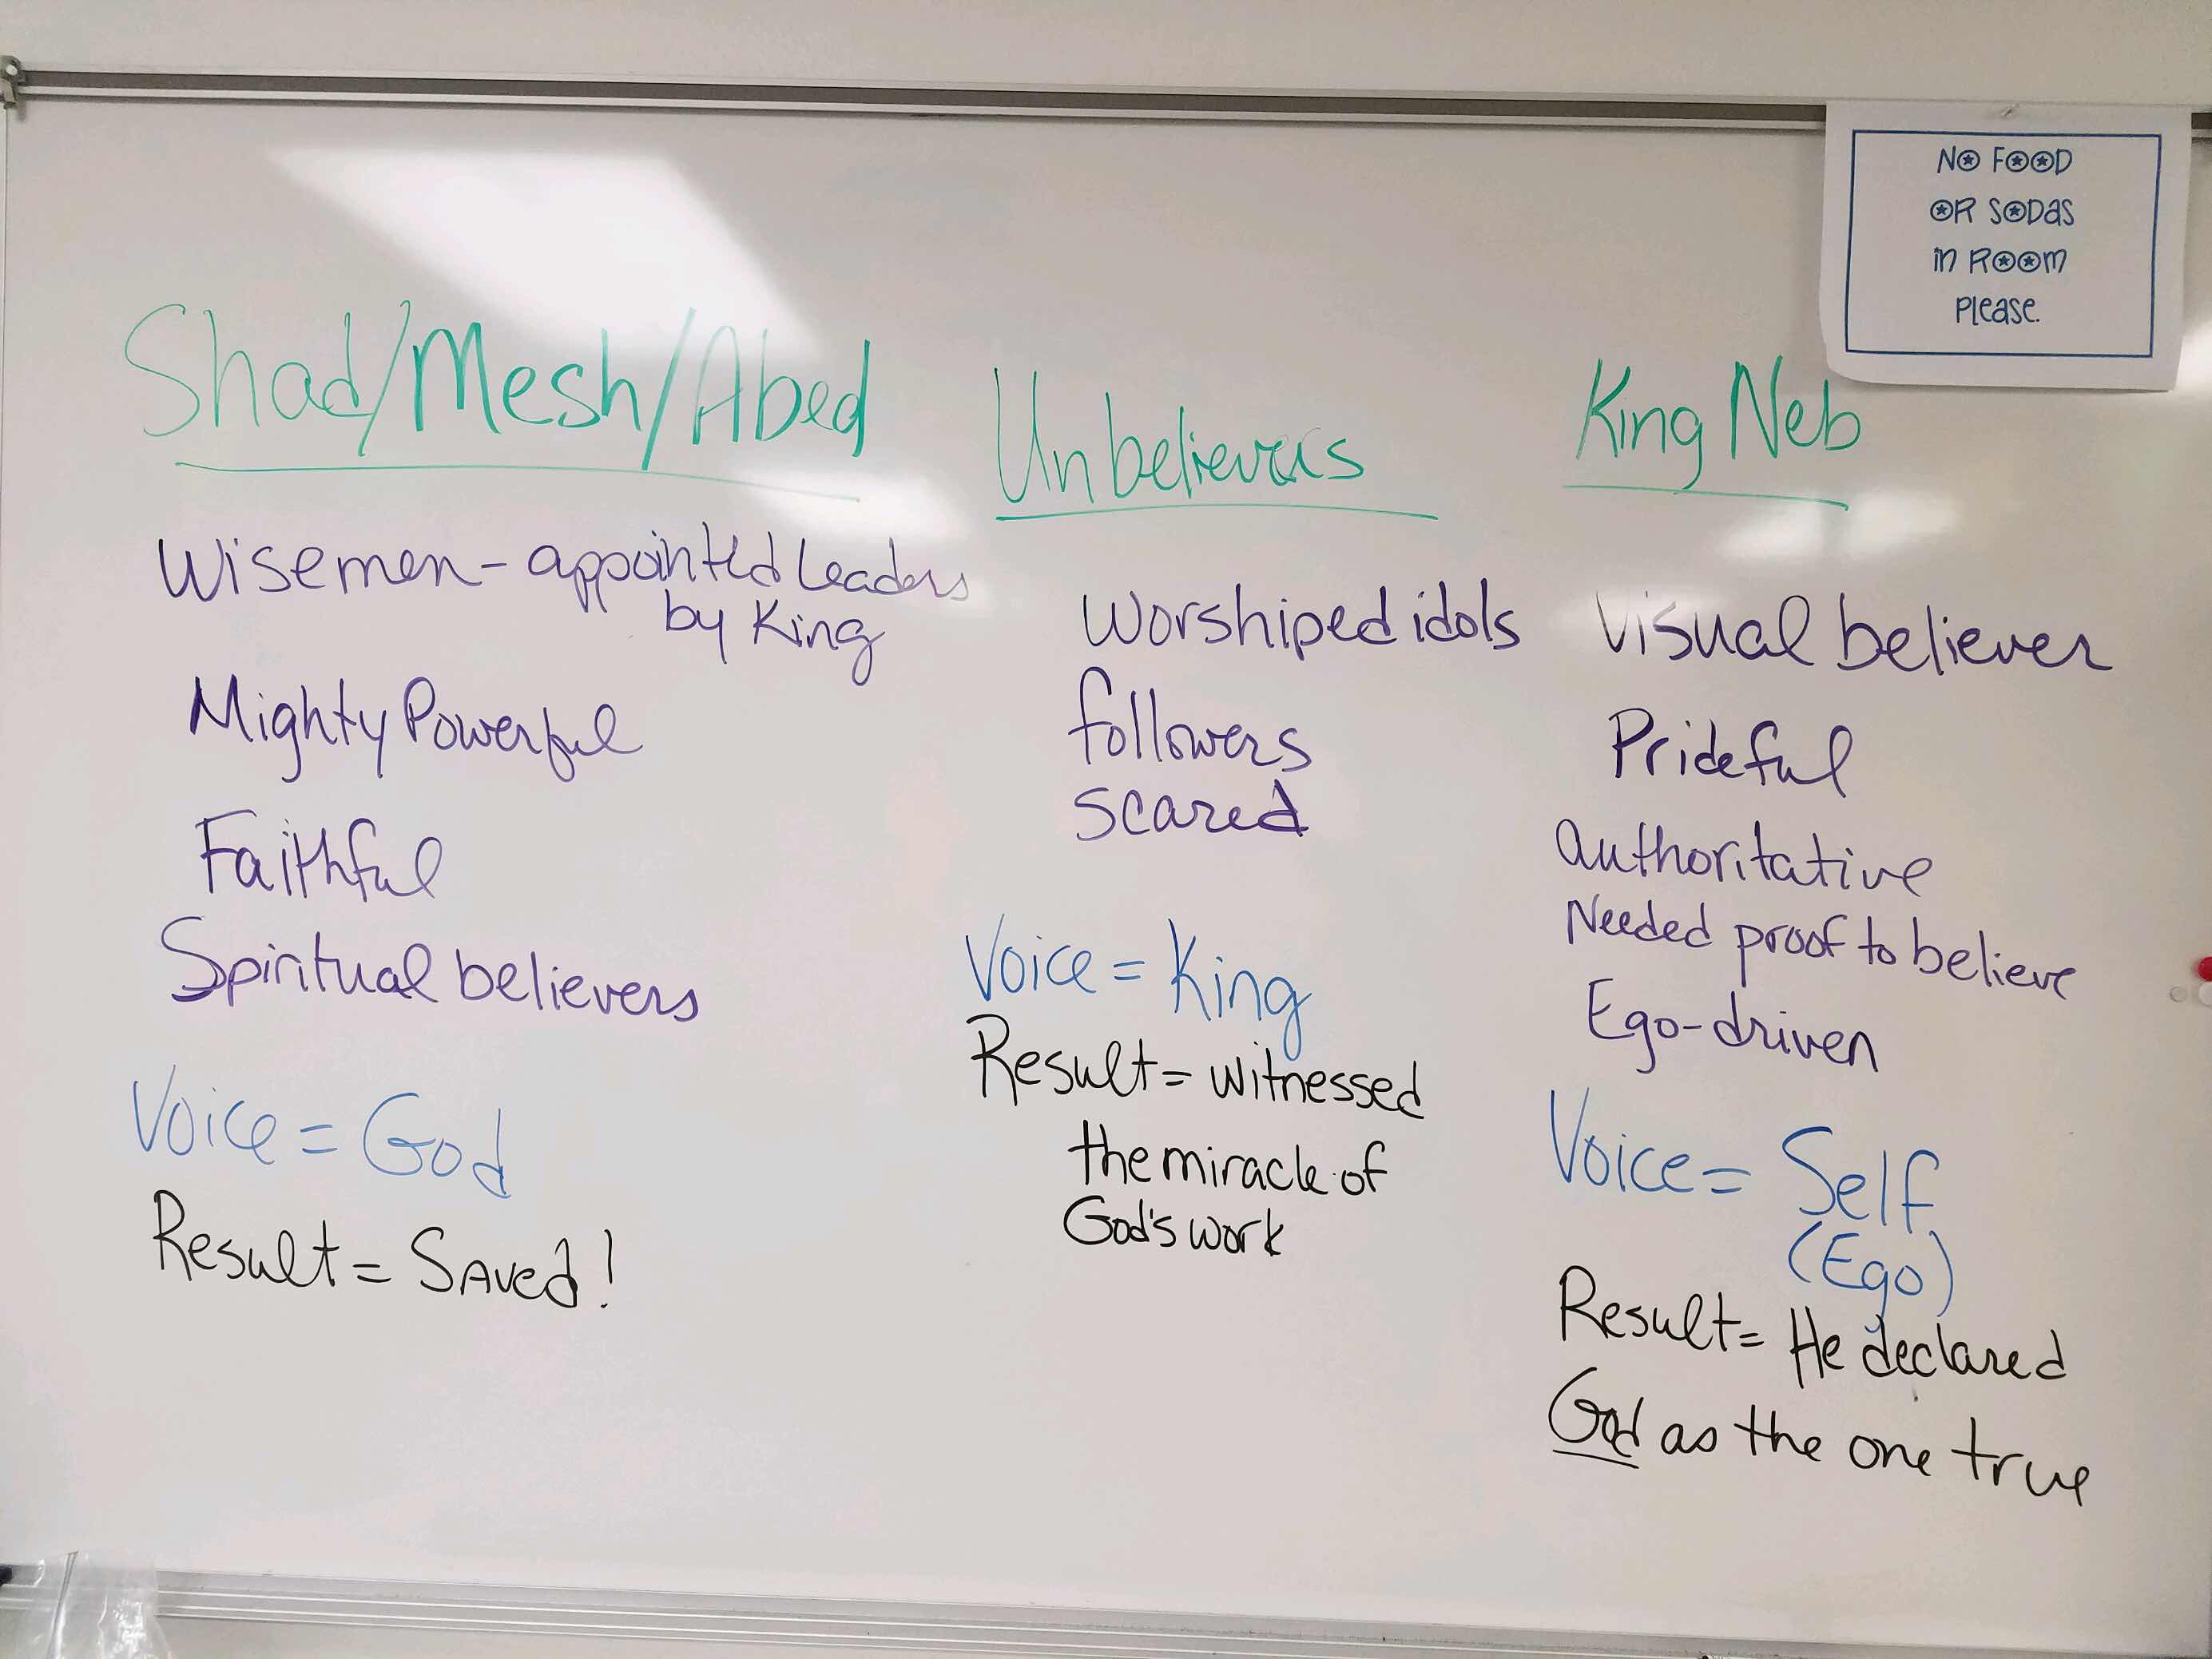 NO FOOD
OR SODAS
IN ROOM
PLEASE.
Shad/Mesh/Abed
Wisemen - appointed leaders
by King
Mighty Powerful
Faithful
Spiritual believers
Voice = God
Result = SAved!
Unbelievers
Worshiped idols
followers
scared
Voice = King
Result = witnessed
the miracle of
God's work
King Neb
Visual believer
Prideful
authoritative
Needed proof to believe
Ego-driven
Voice = Self
(Ego)
Result = He declared
God as the one true